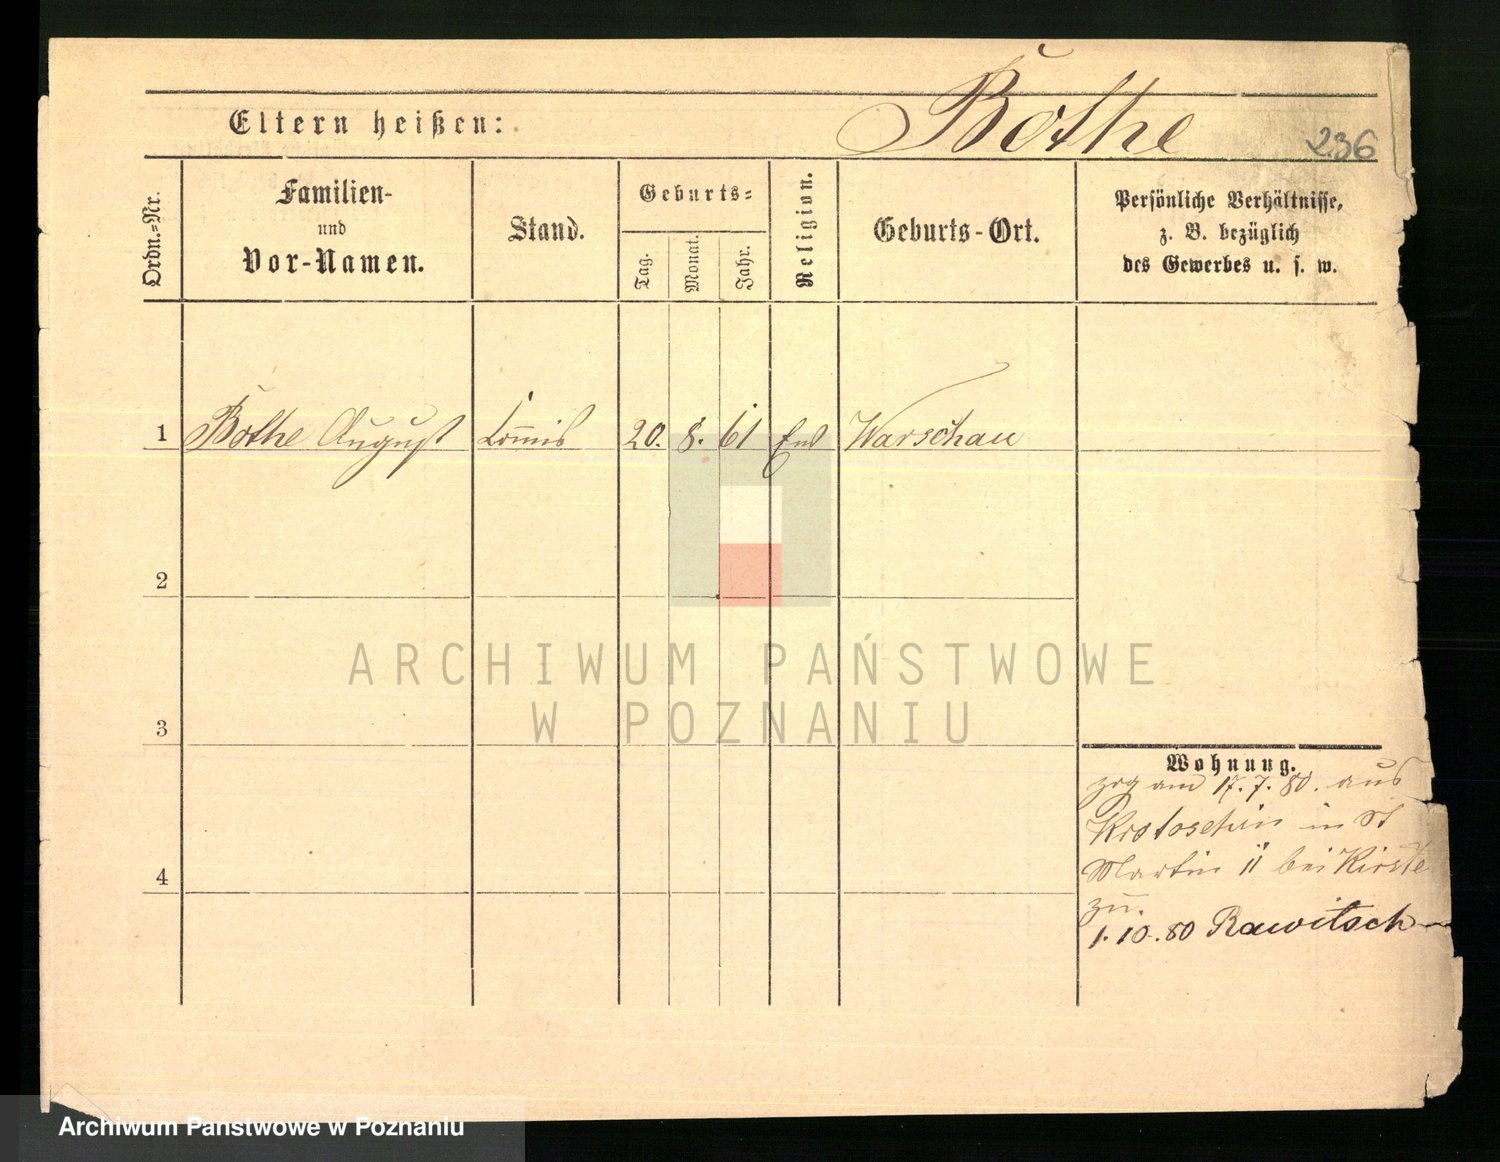 Bothe
Eltern heißen:
236
Ordn.=Nr.
Familien-
und
Vor-Namen.
Stand.
Geburts=
Tag.
Monat.
Jahr.
Religion.
Geburts-Ort.
Persönliche Verhältnisse,
z. B. bezüglich
des Gewerbes u. s. w.
1 Bothe August Commis 20. 8. 61 Warschau
2
3
4
Wohnung.
zog am 17. 7. 80. aus
Krotoschin in St
Martin 11 bei Kirste
zu.
1. 10. 80 Rawitsch
ARCHIWUM PAŃSTWOWE
W POZNANIU
Archiwum Państwowe w Poznaniu